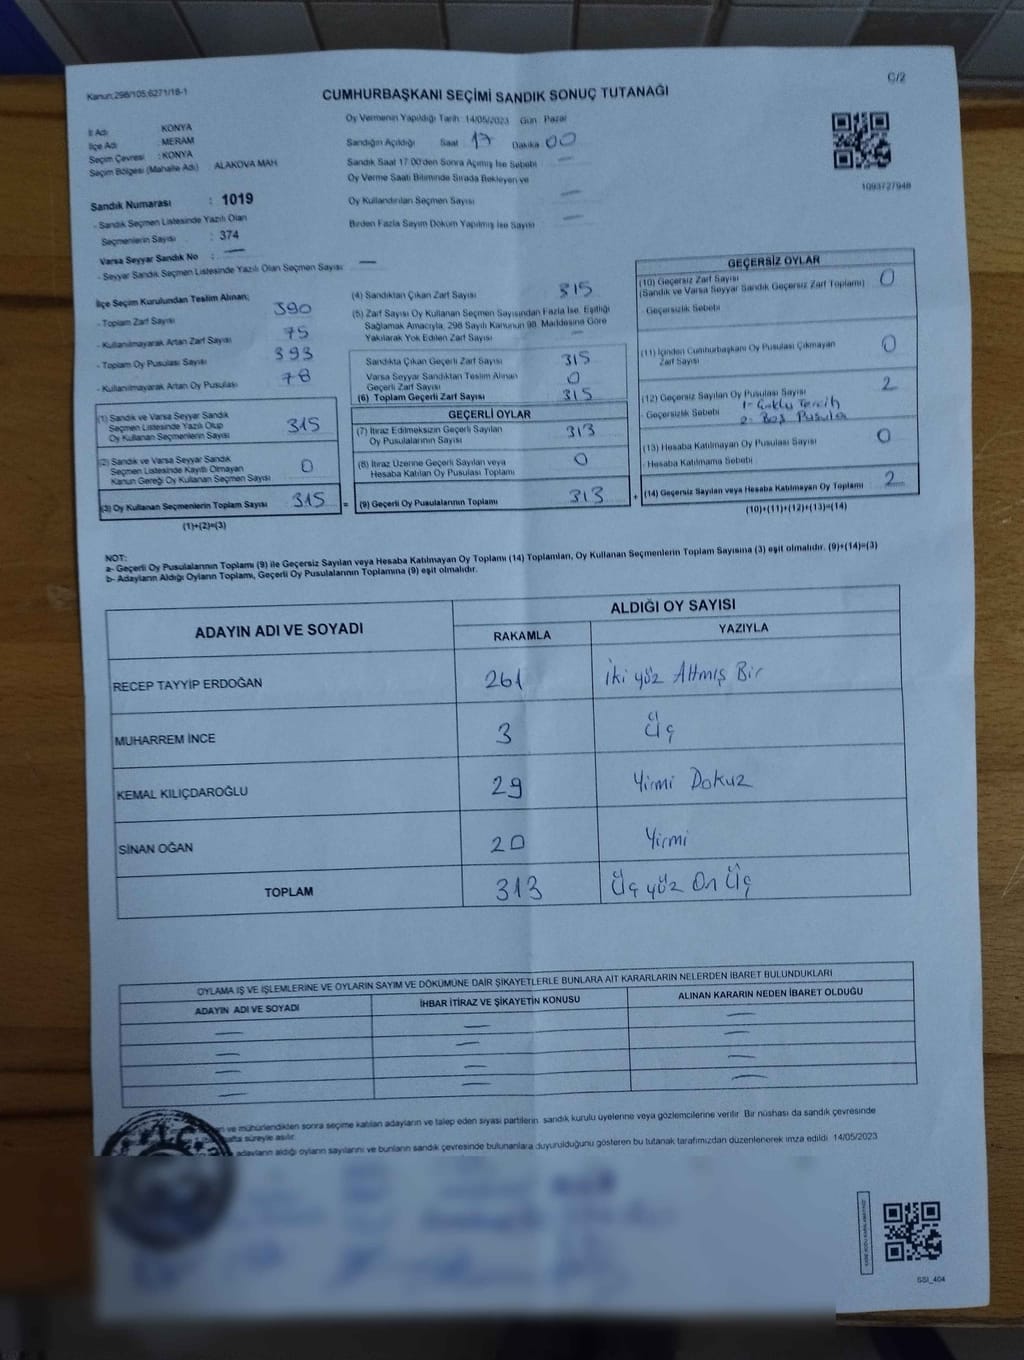 Kanun;298/105;6271/18-1
C/2
CUMHURBAŞKANI SEÇİMİ SANDIK SONUÇ TUTANAĞI
İl Adı : KONYA
İlçe Adı : MERAM
Seçim Çevresi : KONYA
Seçim Bölgesi (Mahalle Adı) : ALAKOVA MAH
Sandık Numarası : 1019
- Sandık Seçmen Listesinde Yazılı Olan
Seçmenlerin Sayısı : 374
Varsa Seyyar Sandık No : —
- Seyyar Sandık Seçmen Listesinde Yazılı Olan Seçmen Sayısı: —
Oy Vermenin Yapıldığı Tarih :14/05/2023 Gün : Pazar
Sandığın Açıldığı Saat : 17 Dakika 00
Sandık Saat 17.00'den Sonra Açımış İse Sebebi —
Oy Verme Saati Bitiminde Sırada Bekleyen ve
Oy Kullandırılan Seçmen Sayısı —
Birden Fazla Sayım Döküm Yapılmış İse Sayısı —
1093727948
İlçe Seçim Kurulundan Teslim Alınan;
- Toplam Zarf Sayısı 390
- Kullanılmayarak Artan Zarf Sayısı 75
- Toplam Oy Pusulası Sayısı 393
- Kullanılmayarak Artan Oy Pusulası 78
(1) Sandık ve Varsa Seyyar Sandık
Seçmen Listesinde Yazılı Olup
Oy Kullanan Seçmenlerin Sayısı 315
(2) Sandık ve Varsa Seyyar Sandık
Seçmen Listesinde Kayıtlı Olmayan
Kanun Gereği Oy Kullanan Seçmen Sayısı 0
(3) Oy Kullanan Seçmenlerin Toplam Sayısı 315 =
(1)+(2)=(3)
(4) Sandıktan Çıkan Zarf Sayısı 315
(5) Zarf Sayısı Oy Kullanan Seçmen Sayısından Fazla İse, Eşitliği
Sağlamak Amacıyla, 298 Sayılı Kanunun 98. Maddesine Göre
Yakılarak Yok Edilen Zarf Sayısı —
Sandıkta Çıkan Geçerli Zarf Sayısı 315
Varsa Seyyar Sandıktan Teslim Alınan
Geçerli Zarf Sayısı 0
(6) Toplam Geçerli Zarf Sayısı 315
GEÇERLİ OYLAR
(7) İtiraz Edilmeksizin Geçerli Sayılan
Oy Pusulalarının Sayısı 313
(8) İtiraz Üzerine Geçerli Sayılan veya
Hesaba Katılan Oy Pusulası Toplamı 0
(9) Geçerli Oy Pusulalarının Toplamı 313 +
GEÇERSİZ OYLAR
(10) Geçersiz Zarf Sayısı
(Sandık ve Varsa Seyyar Sandık Geçersiz Zarf Toplamı) 0
- Geçersizlik Sebebi
(11) İçinden Cumhurbaşkanı Oy Pusulası Çıkmayan
Zarf Sayısı 0
(12) Geçersiz Sayılan Oy Pusulası Sayısı 2
- Geçersizlik Sebebi 1- Çoklu Tercih
2- Boş Pusula
(13) Hesaba Katılmayan Oy Pusulası Sayısı 0
- Hesaba Katılmama Sebebi
(14) Geçersiz Sayılan veya Hesaba Katılmayan Oy Toplamı 2
(10)+(11)+(12)+(13)=(14)
NOT:
a- Geçerli Oy Pusulalarının Toplamı (9) ile Geçersiz Sayılan veya Hesaba Katılmayan Oy Toplamı (14) Toplamları, Oy Kullanan Seçmenlerin Toplam Sayısına (3) eşit olmalıdır. (9)+(14)=(3)
b- Adayların Aldığı Oyların Toplamı, Geçerli Oy Pusulalarının Toplamına (9) eşit olmalıdır.
ADAYIN ADI VE SOYADI
ALDIĞI OY SAYISI
RAKAMLA YAZIYLA
RECEP TAYYİP ERDOĞAN 261 İki yüz Altmış Bir
MUHARREM İNCE 3 Üç
KEMAL KILIÇDAROĞLU 29 Yirmi Dokuz
SİNAN OĞAN 20 Yirmi
TOPLAM 313 Üç yüz On Üç
OYLAMA İŞ VE İŞLEMLERİNE VE OYLARIN SAYIM VE DÖKÜMÜNE DAİR ŞİKAYETLERLE BUNLARA AİT KARARLARIN NELERDEN İBARET BULUNDUKLARI
ADAYIN ADI VE SOYADI İHBAR İTİRAZ VE ŞİKAYETİN KONUSU ALINAN KARARIN NEDEN İBARET OLDUĞU
ve mühürlendikten sonra seçime katılan adayların ve talep eden siyasi partilerin sandık kurulu üyelerine veya gözlemcilerine verilir. Bir nüshası da sandık çevresinde
hafta süreyle asılır.
adayların aldığı oyların sayılarını ve bunların sandık çevresinde bulunanlara duyurulduğunu gösteren bu tutanak tarafımızdan düzenlenerek imza edildi. 14/05/2023
SSI_404